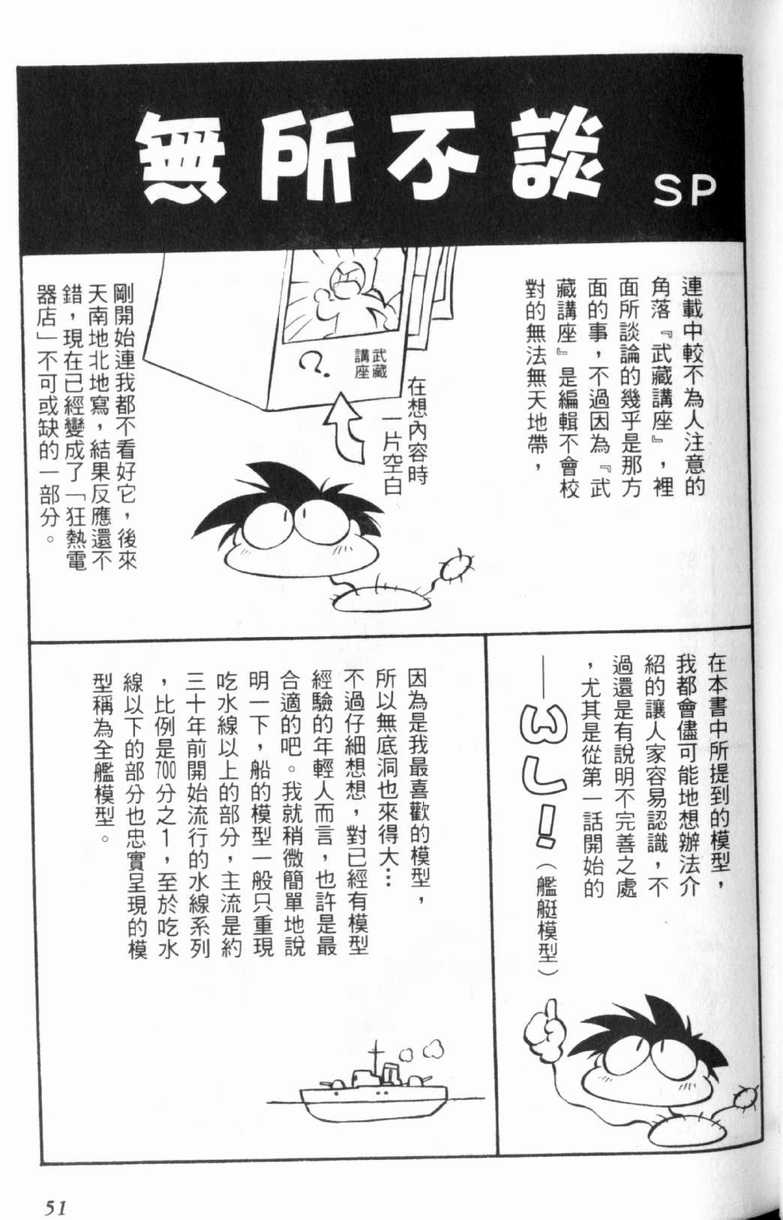 無所不談
SP
連載中較不為人注意的
角落『武藏講座』，裡
面所談論的幾乎是那方
面的事，不過因為『武
藏講座』是編輯不會校
對的無法無天地帶，
武藏
講座
?
在想內容時
一片空白
剛開始連我都不看好它，後來
天南地北地寫，結果反應還不
錯，現在已經變成了「狂熱電
器店」不可或缺的一部分。
在本書中所提到的模型，
我都會儘可能地想辦法介
紹的讓人家容易認識，不
過還是有說明不完善之處
，尤其是從第一話開始的
——WL！（艦艇模型）
因為是我最喜歡的模型，
所以無底洞也來得大…
不過仔細想想，對已經有模型
經驗的年輕人而言，也許是最
合適的吧。我就稍微簡單地說
明一下，船的模型一般只重現
吃水線以上的部分，主流是約
三十年前開始流行的水線系列
，比例是700分之1，至於吃水
線以下的部分也忠實呈現的模
型稱為全艦模型。
51